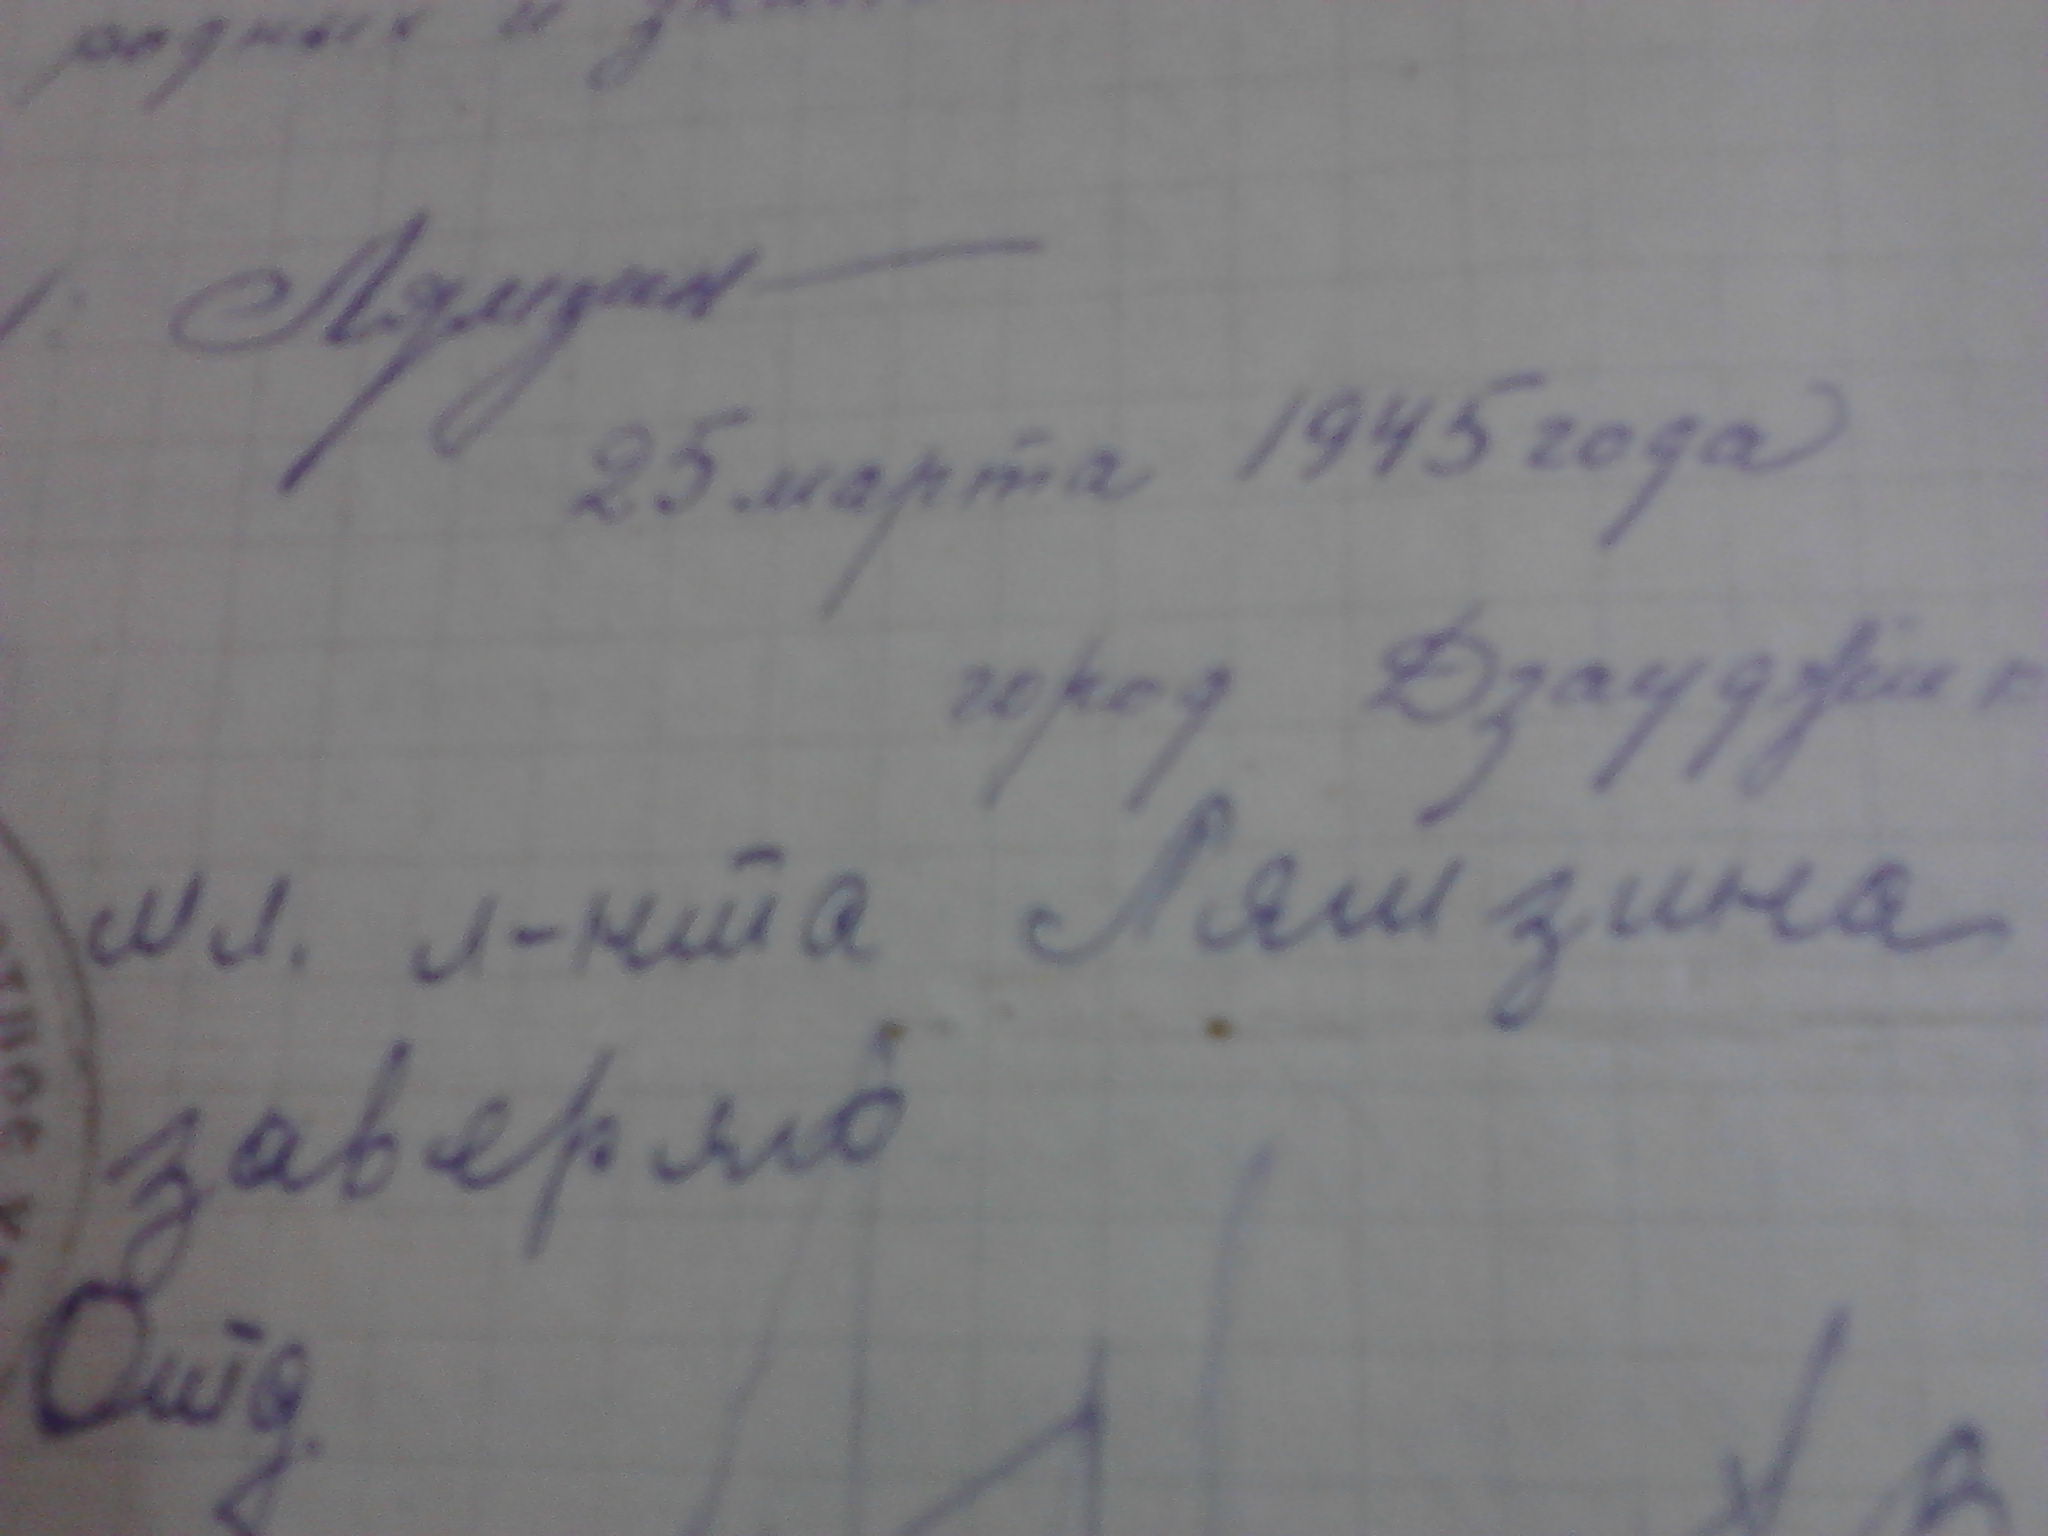 родных и
25 марта 1945 года
город Дзауджик
мл. л-нта Лямзина
заверяю
Отд.